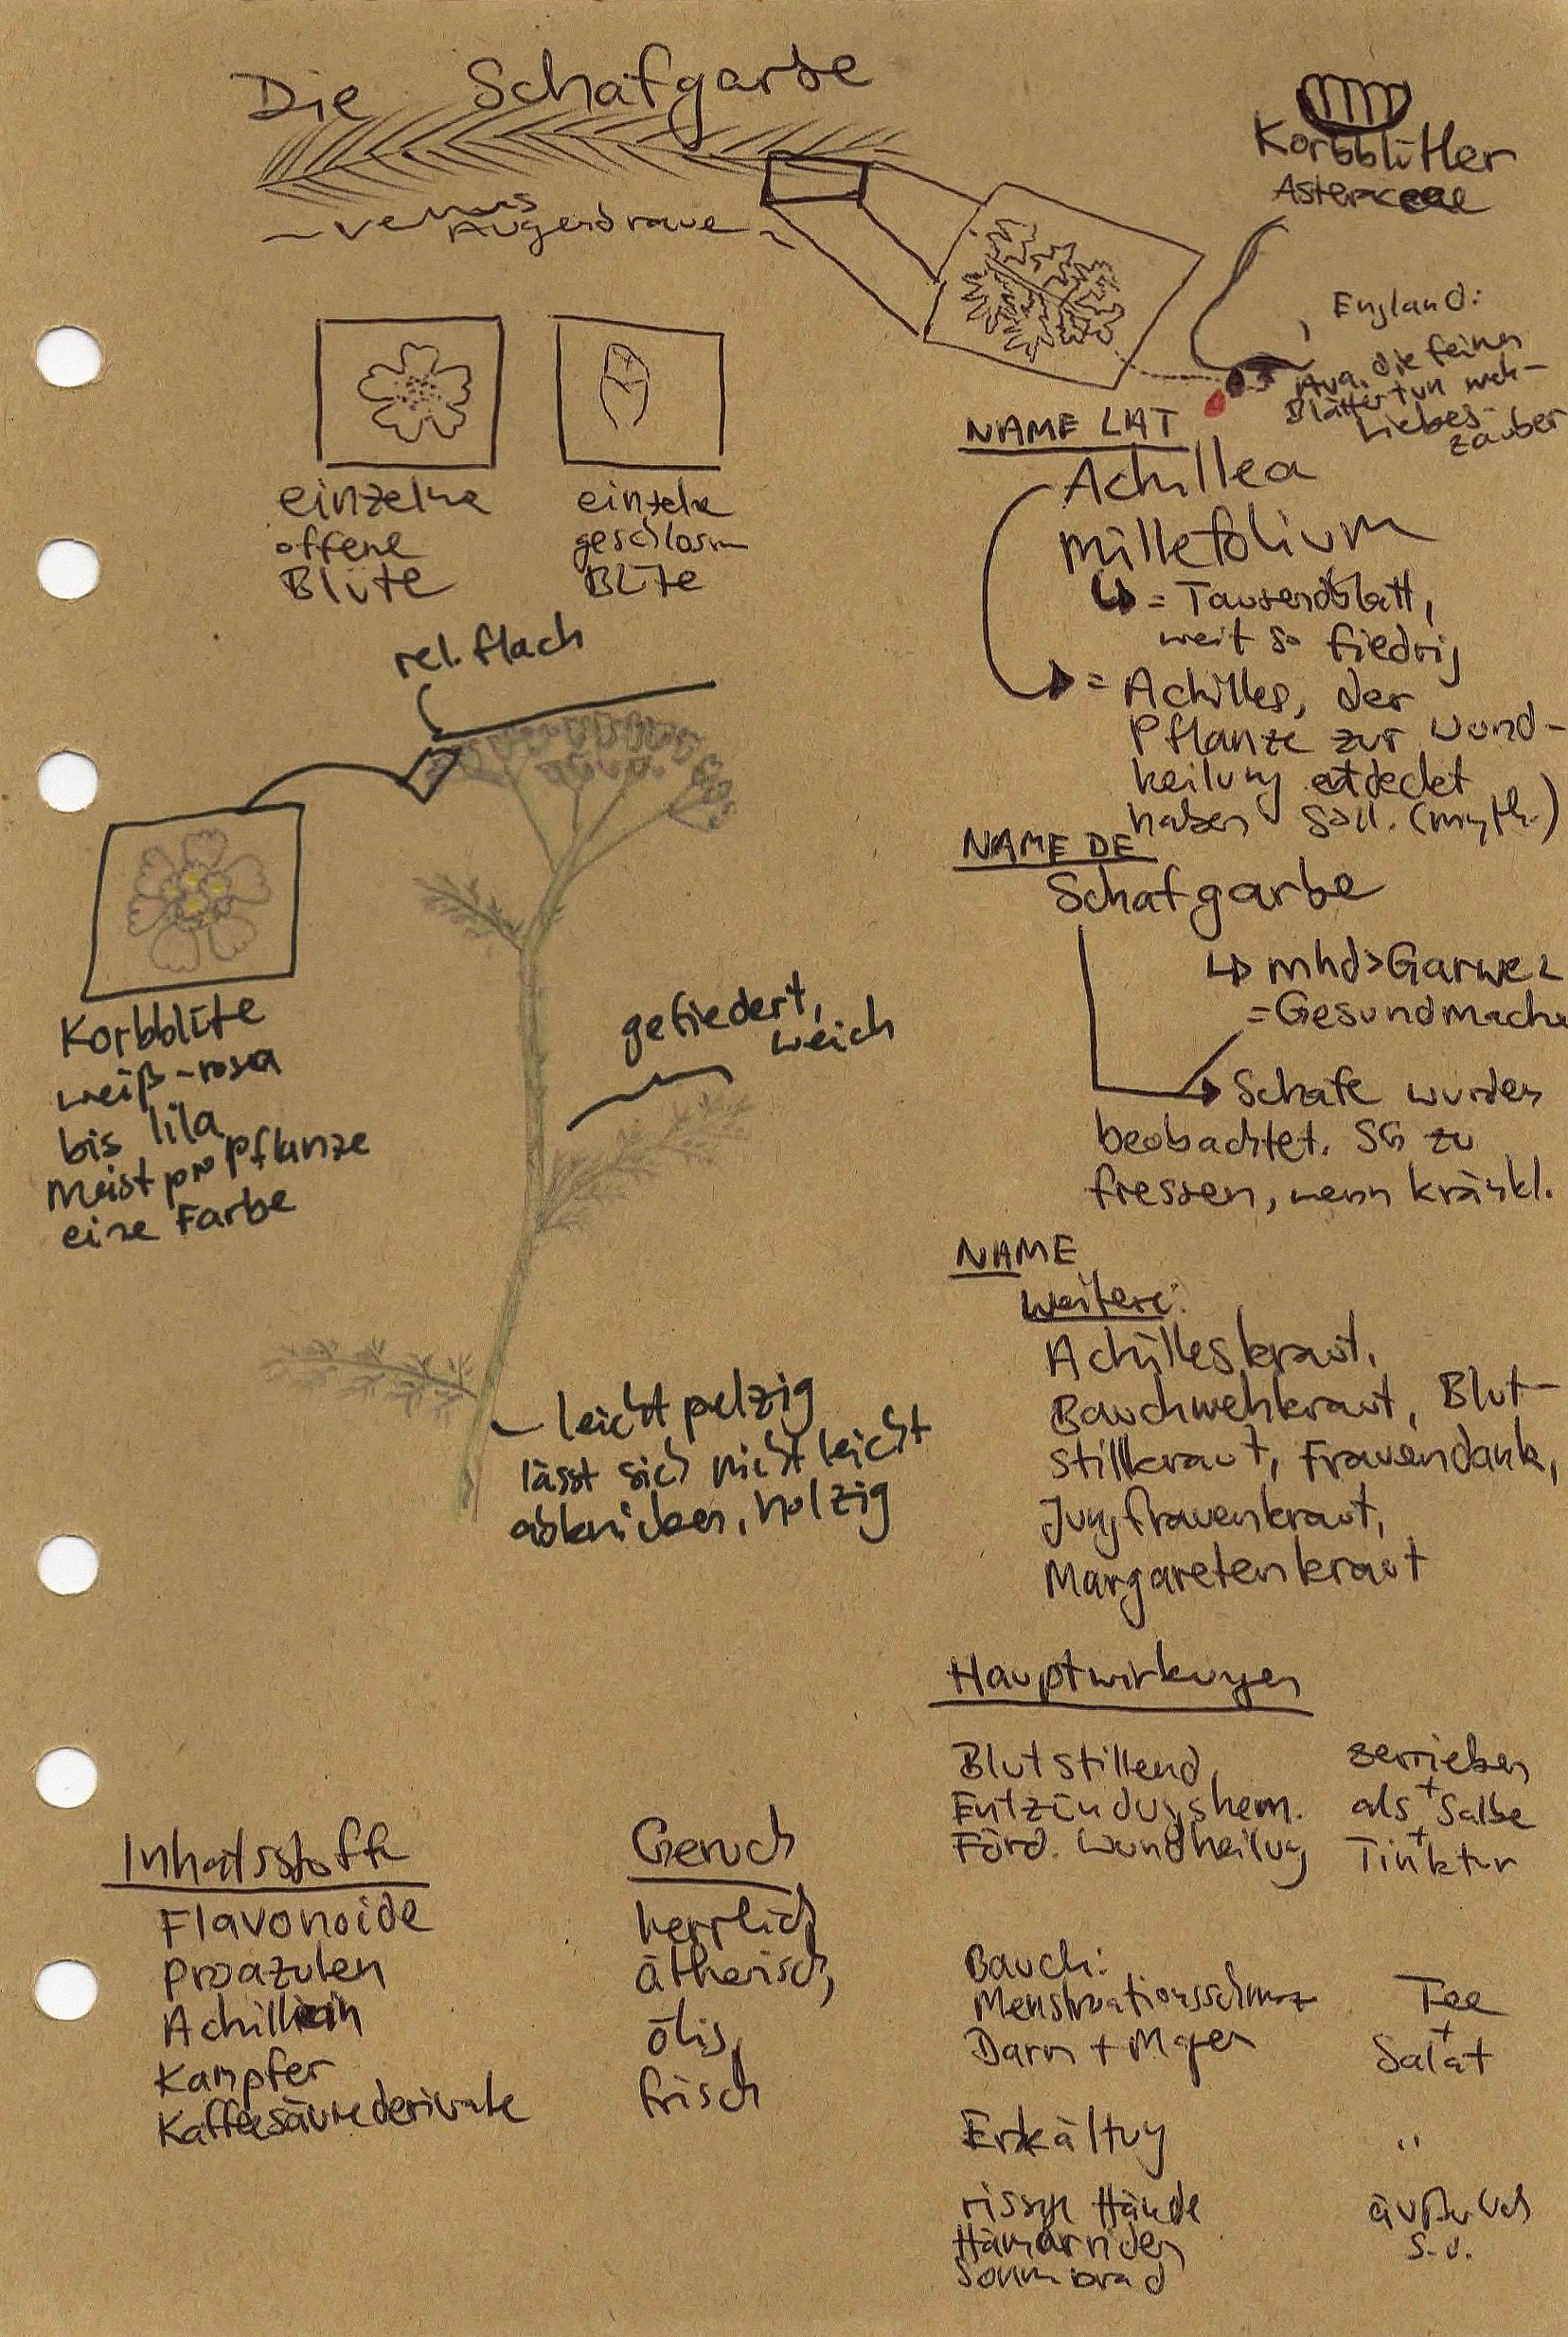 Die Schafgarbe
Korbblütler
Asteraceae
~ venus
Augenbraue ~
England:
die feinen
Blätter tun
Liebes-
zauber
einzelne
offene
Blüte
einzelne
geschlossn
Blüte
NAME LAT
Achillea
millefolium
= Tausendblatt,
weil so fiedrig
= Achilles, der
Pflanze zur Wund-
heilung etdeckt
haben soll. (myth.)
rel. flach
Korbblüte
weiß-rosa
bis lila
Meist pro Pflanze
eine Farbe
gefiedert,
weich
leicht pelzig
lässt sich nicht leicht
abknicken, holzig
NAME DE
Schafgarbe
mhd > Garwe
= Gesundmache
Schafe wurden
beobachtet. SG zu
fressen, wenn kränkl.
NAME
weitere:
Achilleskraut,
Bauchwehkraut, Blut-
stillkraut, Frauendank,
Jungfrauenkraut,
Margaretenkraut
Hauptwirkungen
Blutstillend, zerrieben
+
Entzündungshem. als Salbe
+
Förd. Wundheilung Tinktur
Bauch:
Menstruationsschmerz Tee
+
Darm + Magen Salat
Erkältung "
rissige Hände äußerlich
Hämorriden s.o.
Sonnenbrand
Inhaltsstoffe
Flavonoide
Proazulen
Achillein
Kampfer
Kaffeesäurederivate
Geruch
herrlich
ätherisch,
ölig,
frisch